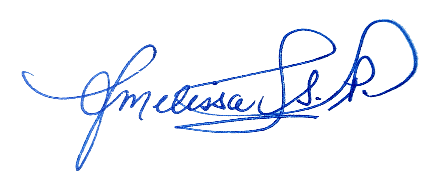 melissa S. P.